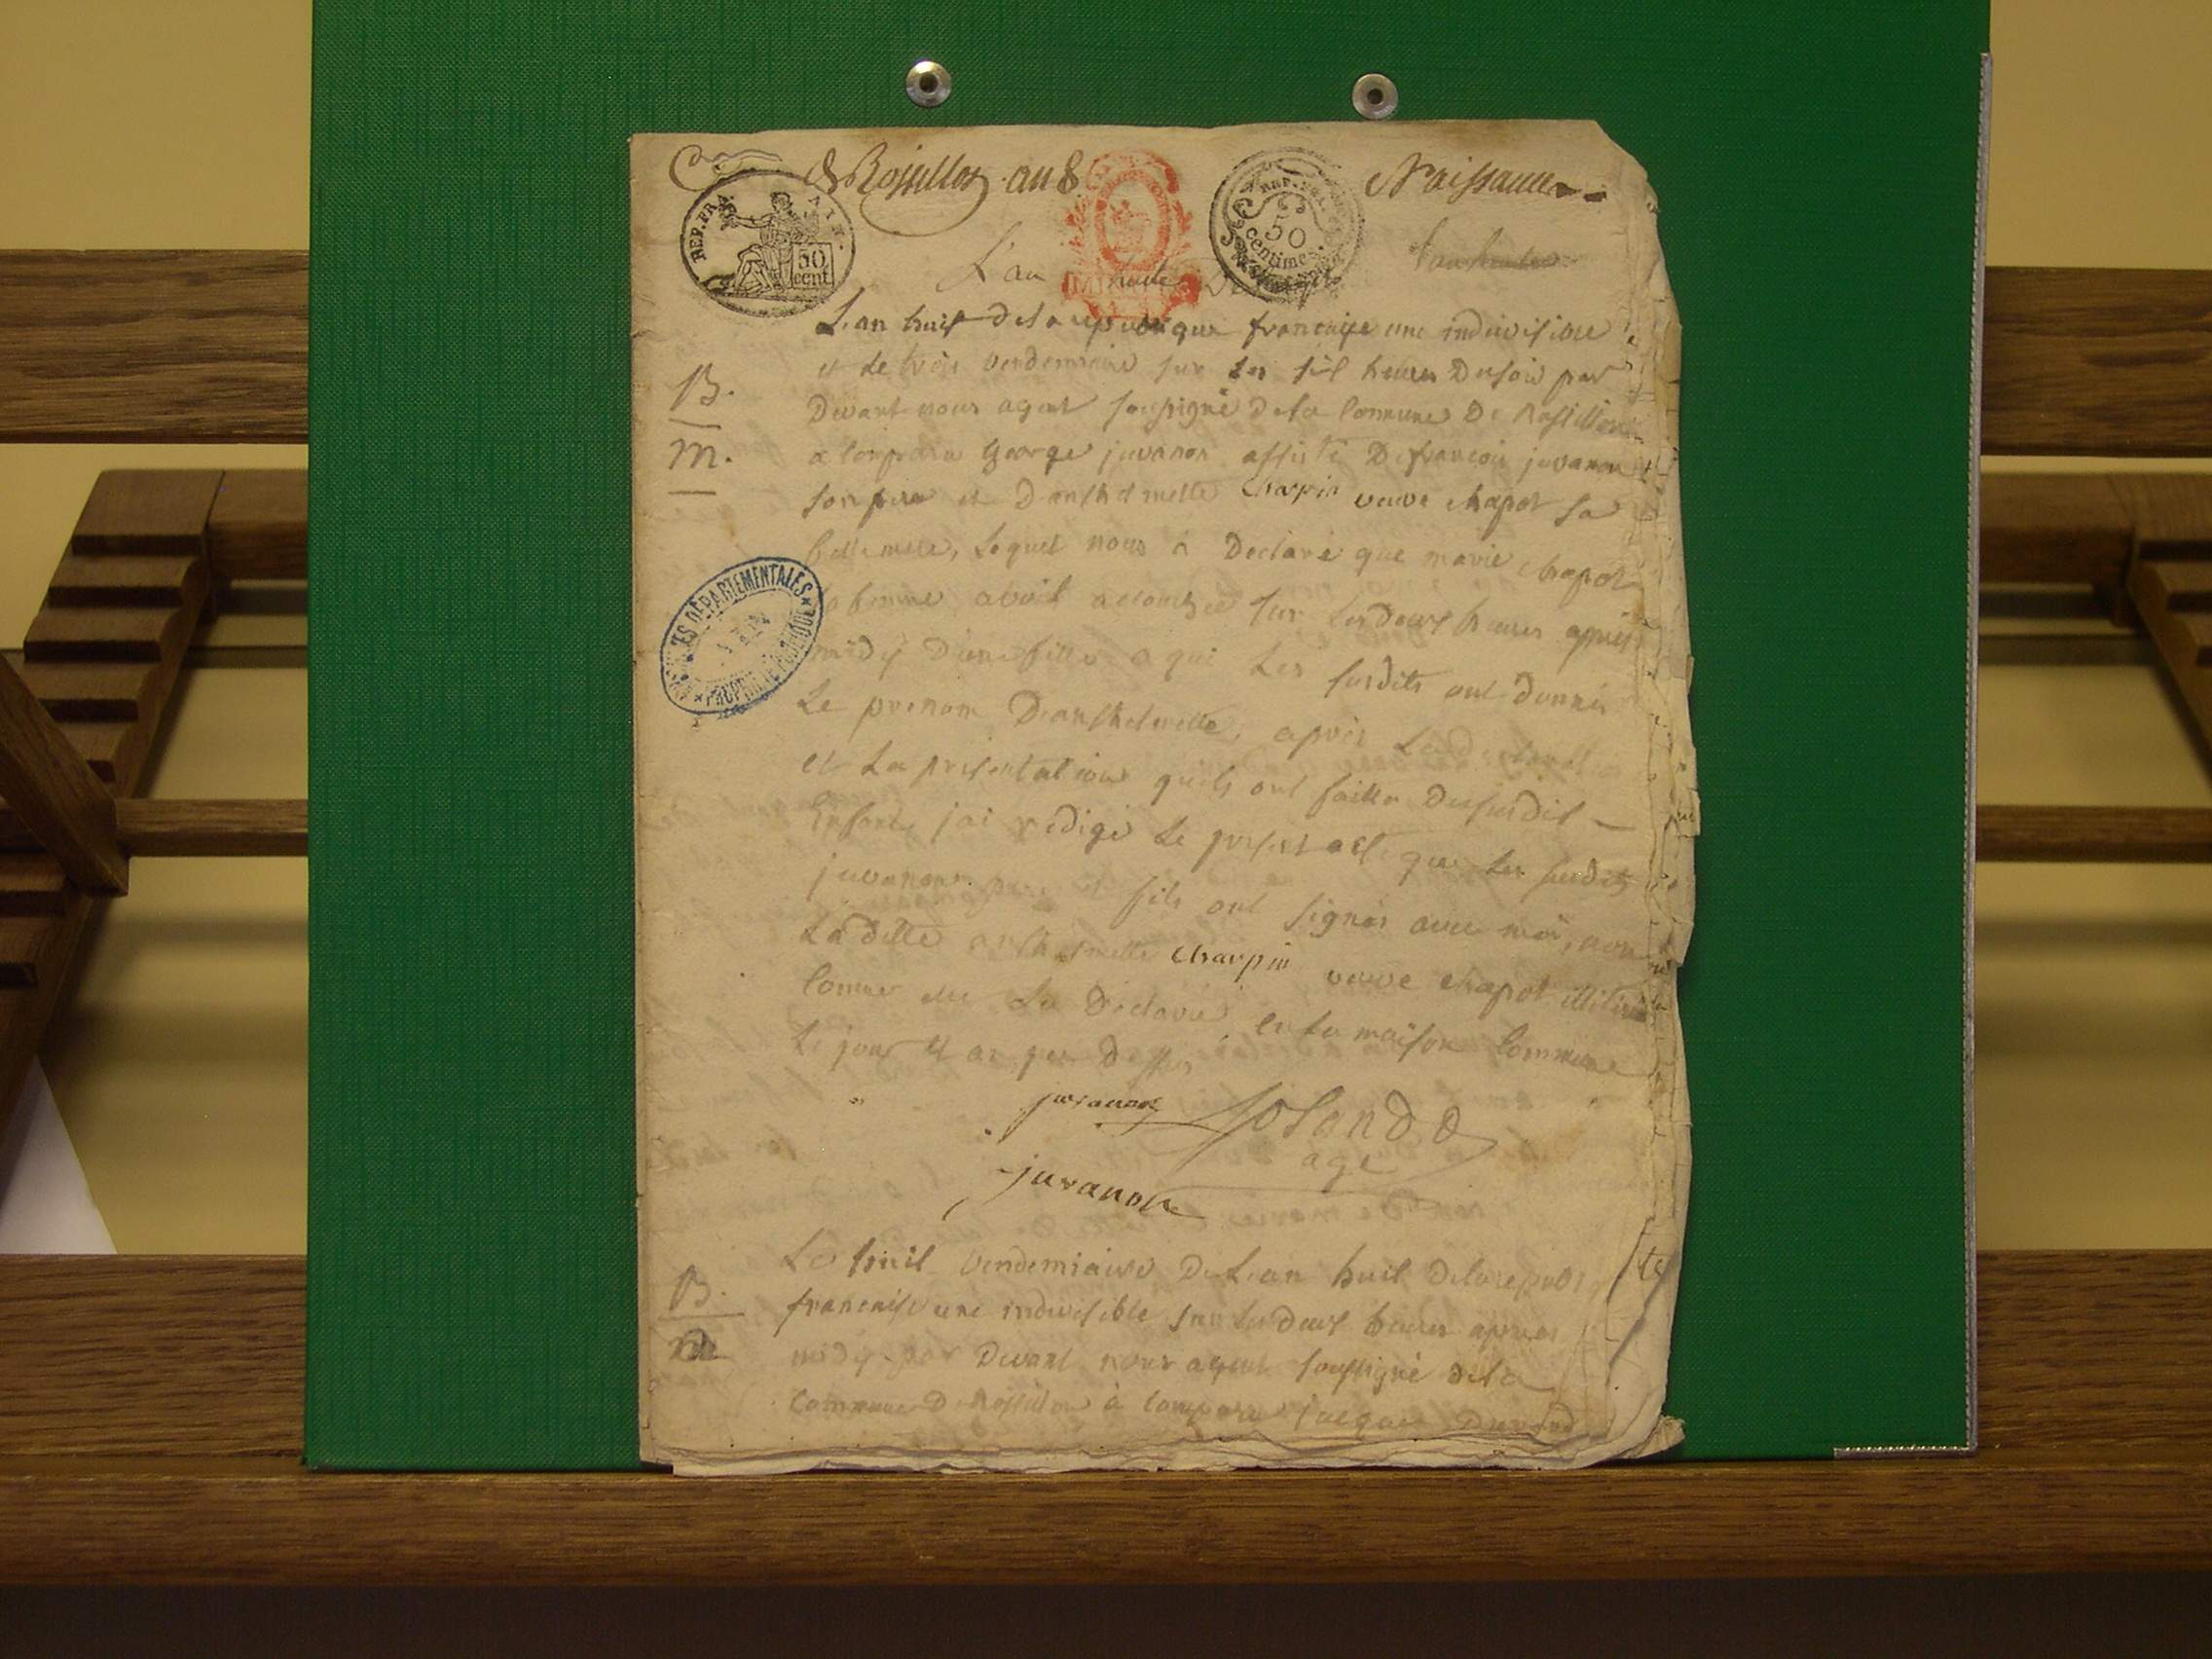 de Rossillon an 8 Naissance
REP. FRA
AIN.
50
cent
REP. FRA.
50
centimes
L'an
L'an huit de la republique francaise une indivisible
et le trois vendemiaire sur les six heures du soir par
devant nous agent soussigné de la commune De Rossillon
a comparu george juvanon assisté De francois juvanon
son pere et D'anthelmette charpin veuve chapot sa
belle mere, lequel nous à Declaré que marie chapot
sa femme avoit acouchée sur les deux heures après
midÿ D'une fille a qui les susdits ont donnés
Le prenom D'anthelmette, après La Declaration
et La presentation quils ont faitte Du susdit
Enfant, jai redigé le present acte que les susdits
juvanon pere et fils ont signés avec moi, non
La ditte anthelmette charpin veuve chapot illiterée
comme elle La Declaré, en la maison commune
Le jour et an que Dessus
juvanon Joland
age
juvanon
B.
m.
ARCHIVES DÉPARTEMENTALES
PROPRIÉTÉ PUBLIQUE
Le huit vendemiaire De L'an huit de la republ
francaise une indivisible sur les deux heures après
midÿ par Devant nous agent soussigné de la
commune De Rossillon à comparu jacques Durand
B.
m